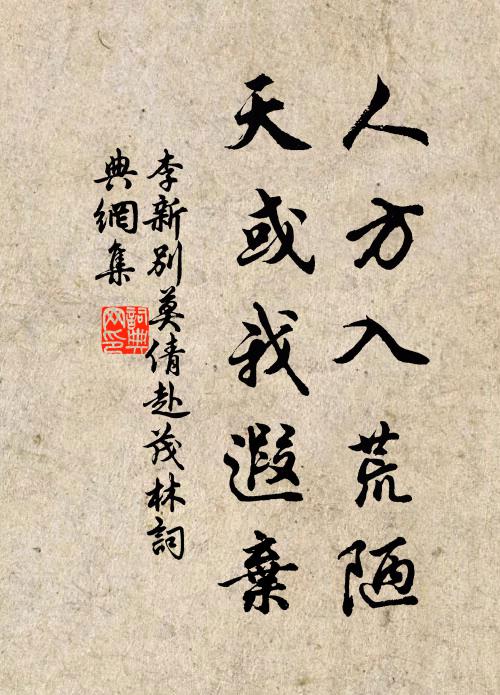 人方入荒陋
天或我遐棄
李新别莫倩赴茂林詞
典網集
詞典
网印